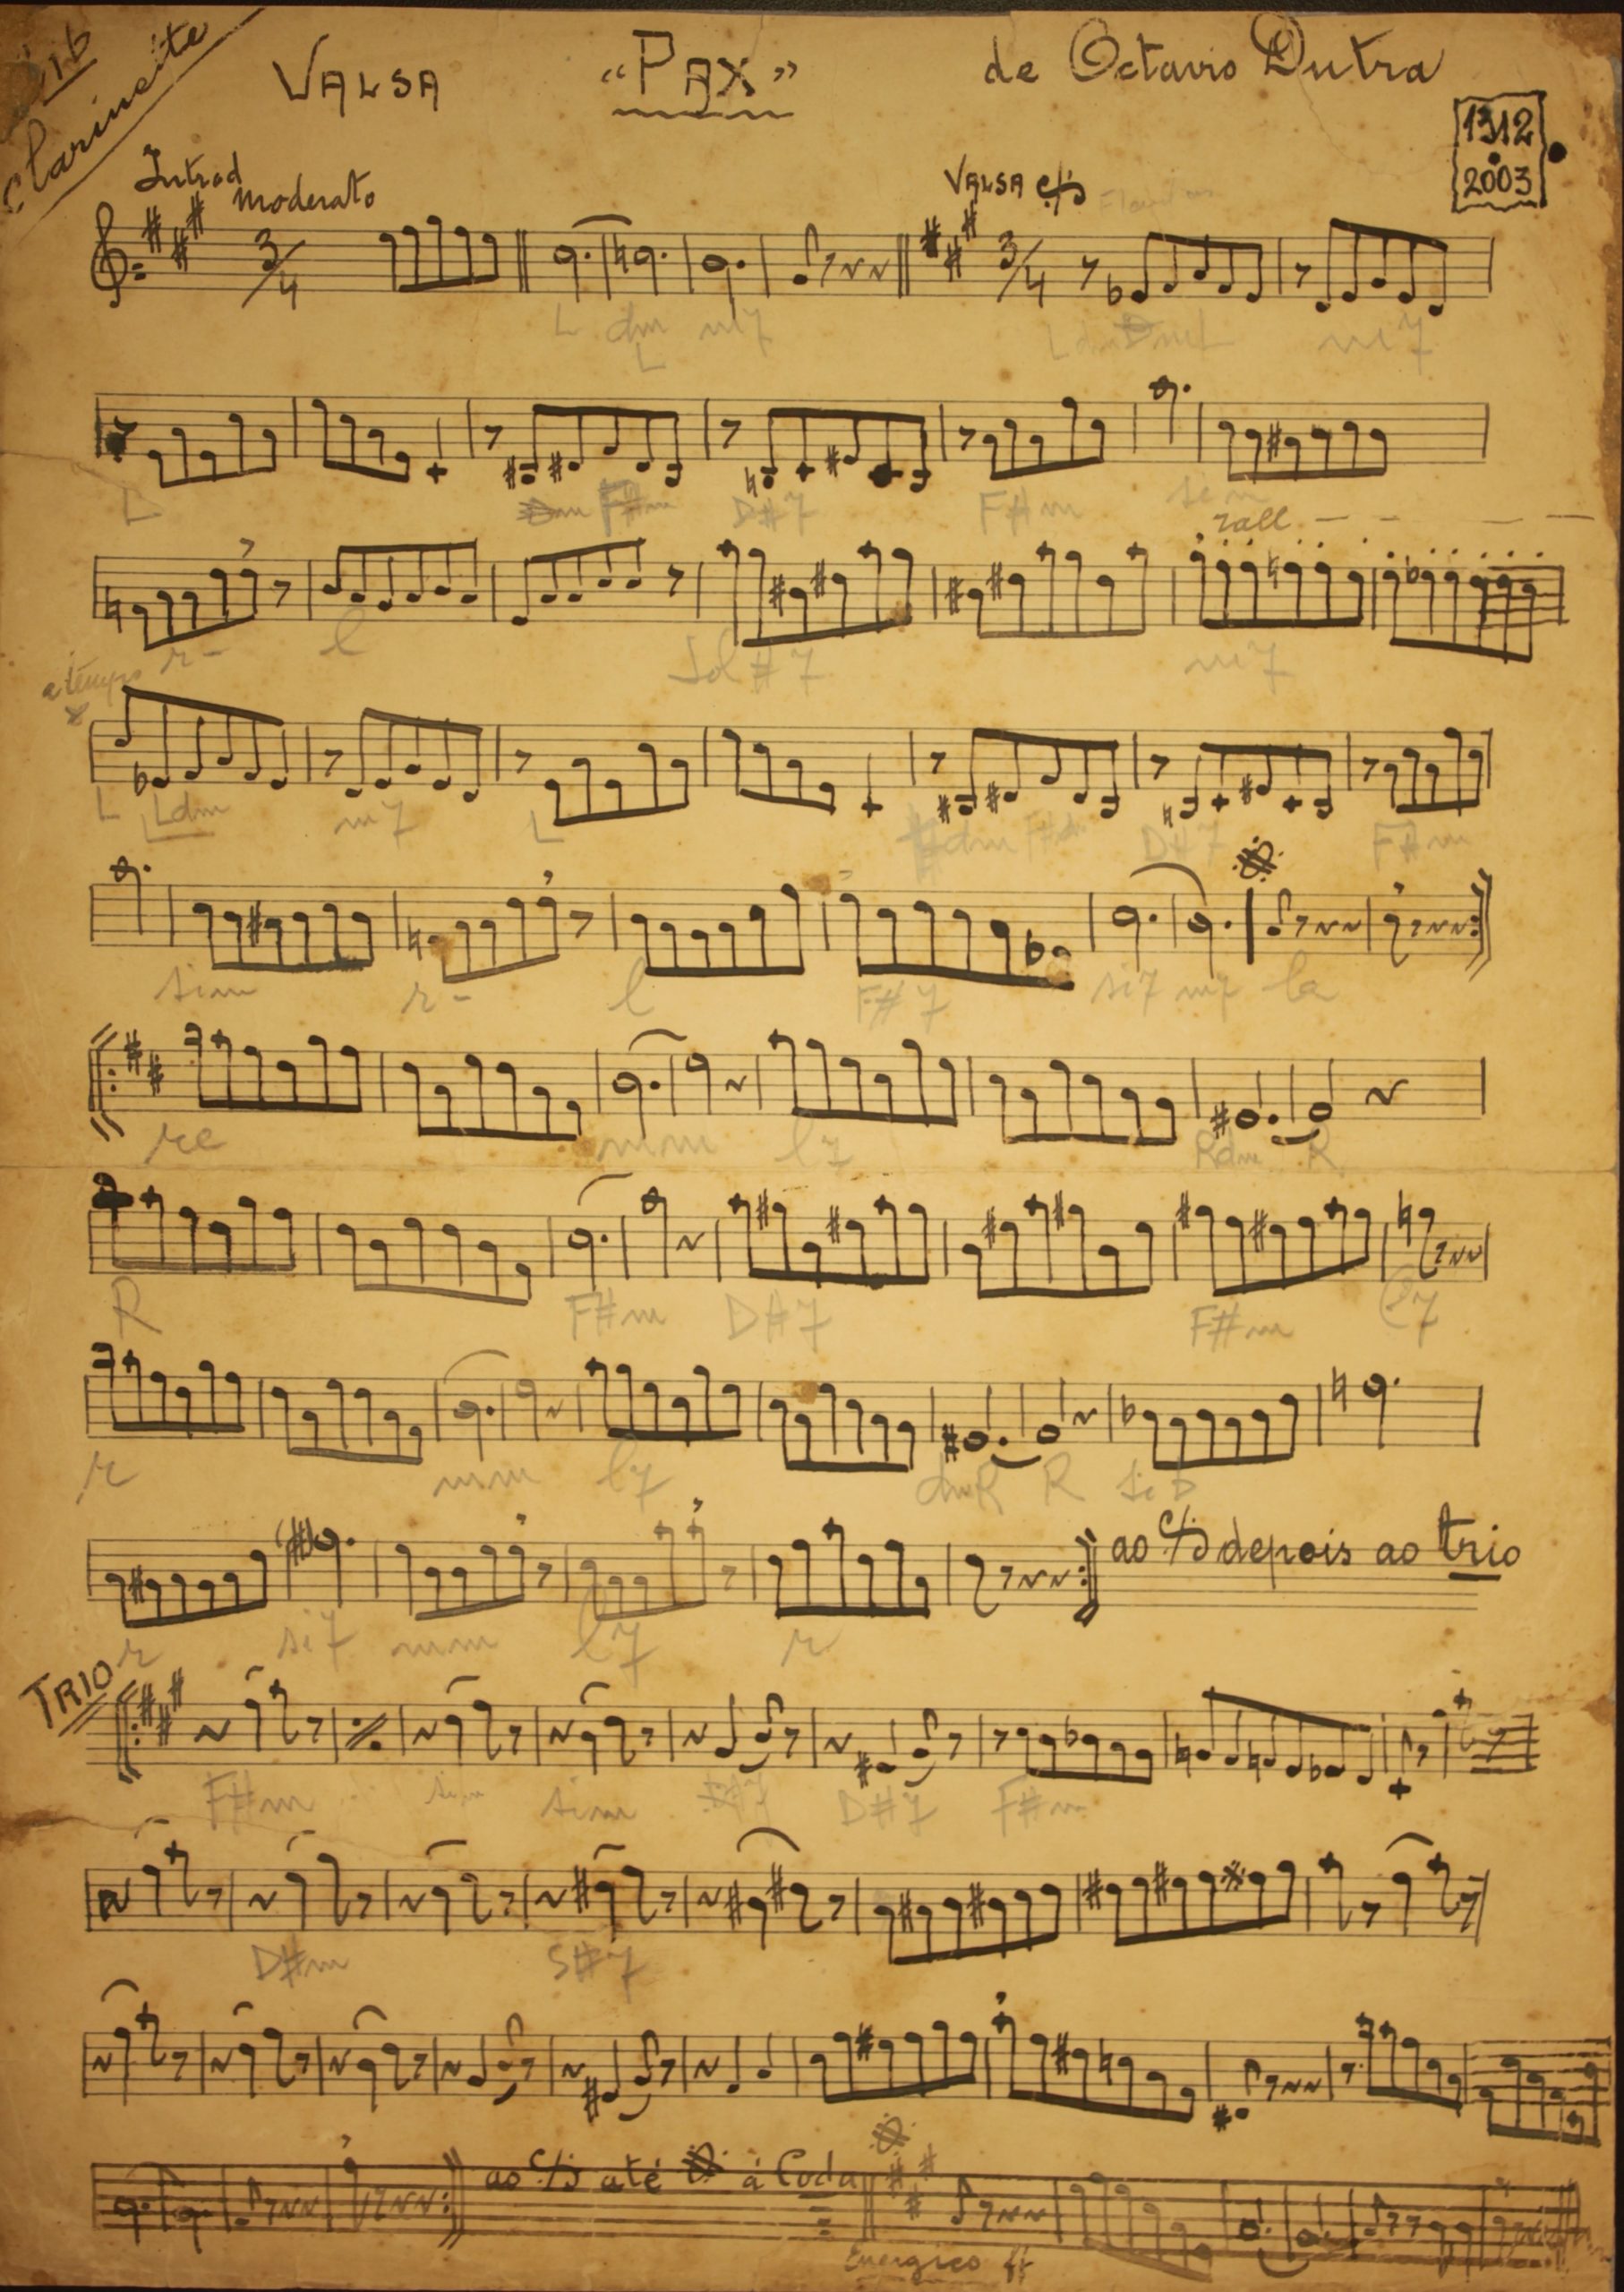 Sib
Clarinete
VALSA "PAX" de Octavio Dutra
1312
2003
Introd Moderato
VALSA
3/4 3/4
L dm m7 m7
L
L
F#m D#7 F#m sim
rall
r- l Sol#7 m7
a tempo
L Ldm m7 L D#7 F#m
sim r- l F#7 si7 m7 la
re mm l7 Rdm R
R F#m D#7 F#m l7
r mm l7 dmR R sib
ao depois ao trio
r si7 mm l7 r
TRIO
F#m sim sim D#7 F#m
D#m S#7
ao até à Coda
Energico ff